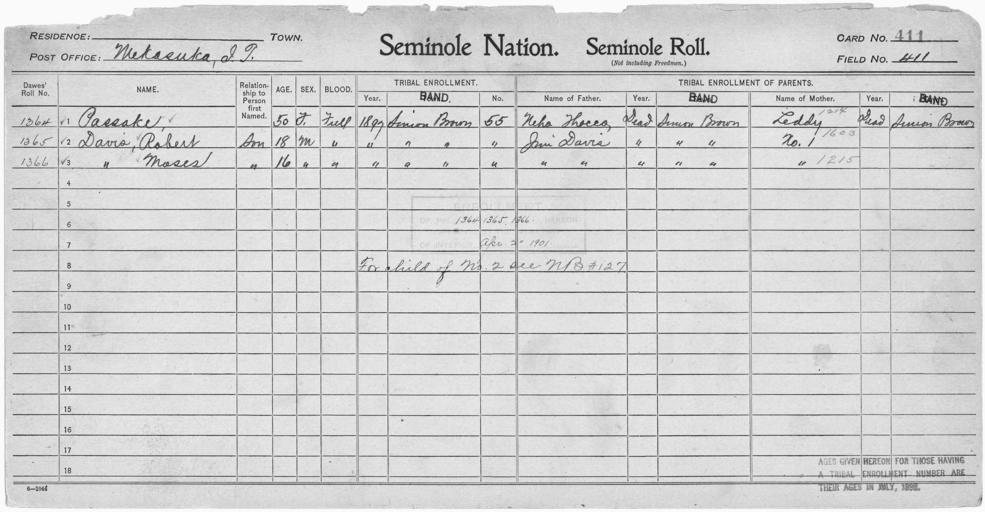 RESIDENCE: TOWN.
POST OFFICE: Mekasuka, I. T.
Seminole Nation. Seminole Roll.
(Not including Freedmen.)
CARD NO. 411
FIELD NO. 411
Dawes' Roll No. NAME. Relationship to Person first Named. AGE. SEX. BLOOD. TRIBAL ENROLLMENT. TRIBAL ENROLLMENT OF PARENTS.
Year. BAND. No. Name of Father. Year. BAND Name of Mother. Year. BAND
1364 √1 Passake, 50 F. Full 1897 Simion Brown 55 Neha Thocco, Dead Simion Brown Leddy 1214 Dead Simion Brown
1365 √2 Davis, Robert Son 18 M " " " " " Jim Davis " " " No. 1 1603
1366 √3 " Moses " 16 " " " " " " " " " " " " 1215
4
5
ENROLLMENT
6 OF HEREON 1364 1365 1366
7 OF INTERIOR Apr 2 1901
8 For child of No. 2 see NB #127
9
10
11
12
13
14
15
16
17
18
AGES GIVEN HEREON FOR THOSE HAVING
A TRIBAL ENROLLMENT NUMBER ARE
THEIR AGES IN JULY, 1898.